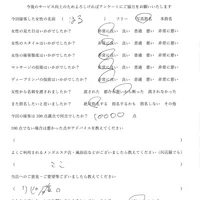 今後のサービス向上のためよろしければアンケートにご協力をお願いいたします
今回接客した女性の名前 ( はる ) フリー 写真指名 本指名
女性の見た目はいかがでしたか? 非常に良い 良い 普通 悪い 非常に悪い
女性のスタイルはいかがでしたか? 非常に良い 良い 普通 悪い 非常に悪い
女性の接客はいかがでしたか? 非常に良い 良い 普通 悪い 非常に悪い
マッサージの技術はいかがでしたか? 非常に良い 良い 普通 悪い 非常に悪い
ディープリンパの技術はいかがでしたか? 非常に良い 良い 普通 悪い 非常に悪い
また指名したいと思いましたか? 絶対指名する 指名するかも 指名しない その他
今回の接客は100点満点で何点でしたか? ( 10000 ) 点
100点でない場合は悪かった点やアドバイスを教えてください
( )
よくご利用されるメンズエステ店・風俗店などがございましたら教えてください
( ここ )
当店へのご意見・ご要望等ございましたら教えてください